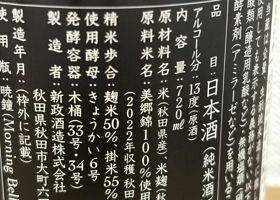 品　目　日本酒　純米酒
アルコール分　13度　原酒
内容量　720㎖
原材料名　米（秋田県産）、米麹（秋
原料米名　美郷錦100％使用
（2022年収穫 秋田
精米歩合　麹米50％ 掛米55％
使用酵母　きょうかい6号
発酵容器　木桶（33号・34号）
製造者　新政酒造株式会社
秋田県秋田市大町六
製造年月　（枠外に記載）
使用瓶　暁鐘（Morning Bel